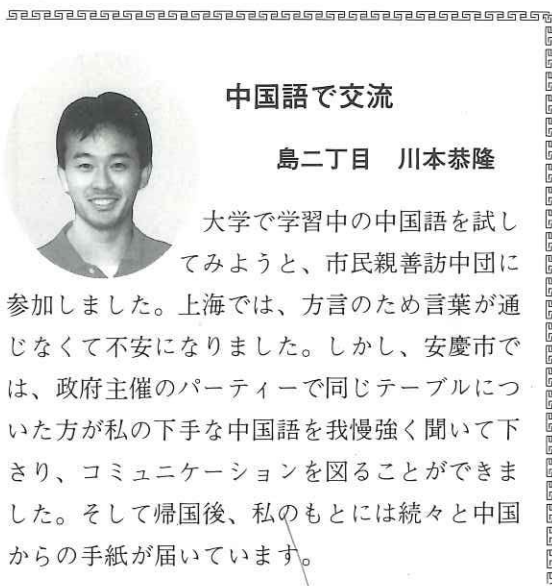 中国語で交流
島二丁目　川本恭隆
大学で学習中の中国語を試し
てみようと、市民親善訪中団に
参加しました。上海では、方言のため言葉が通
じなくて不安になりました。しかし、安慶市で
は、政府主催のパーティーで同じテーブルにつ
いた方が私の下手な中国語を我慢強く聞いて下
さり、コミュニケーションを図ることができま
した。そして帰国後、私のもとには続々と中国
からの手紙が届いています。